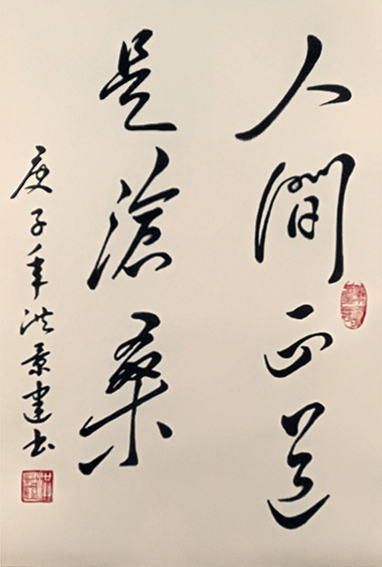 人間正道
是滄桑
庚子年洪景建书